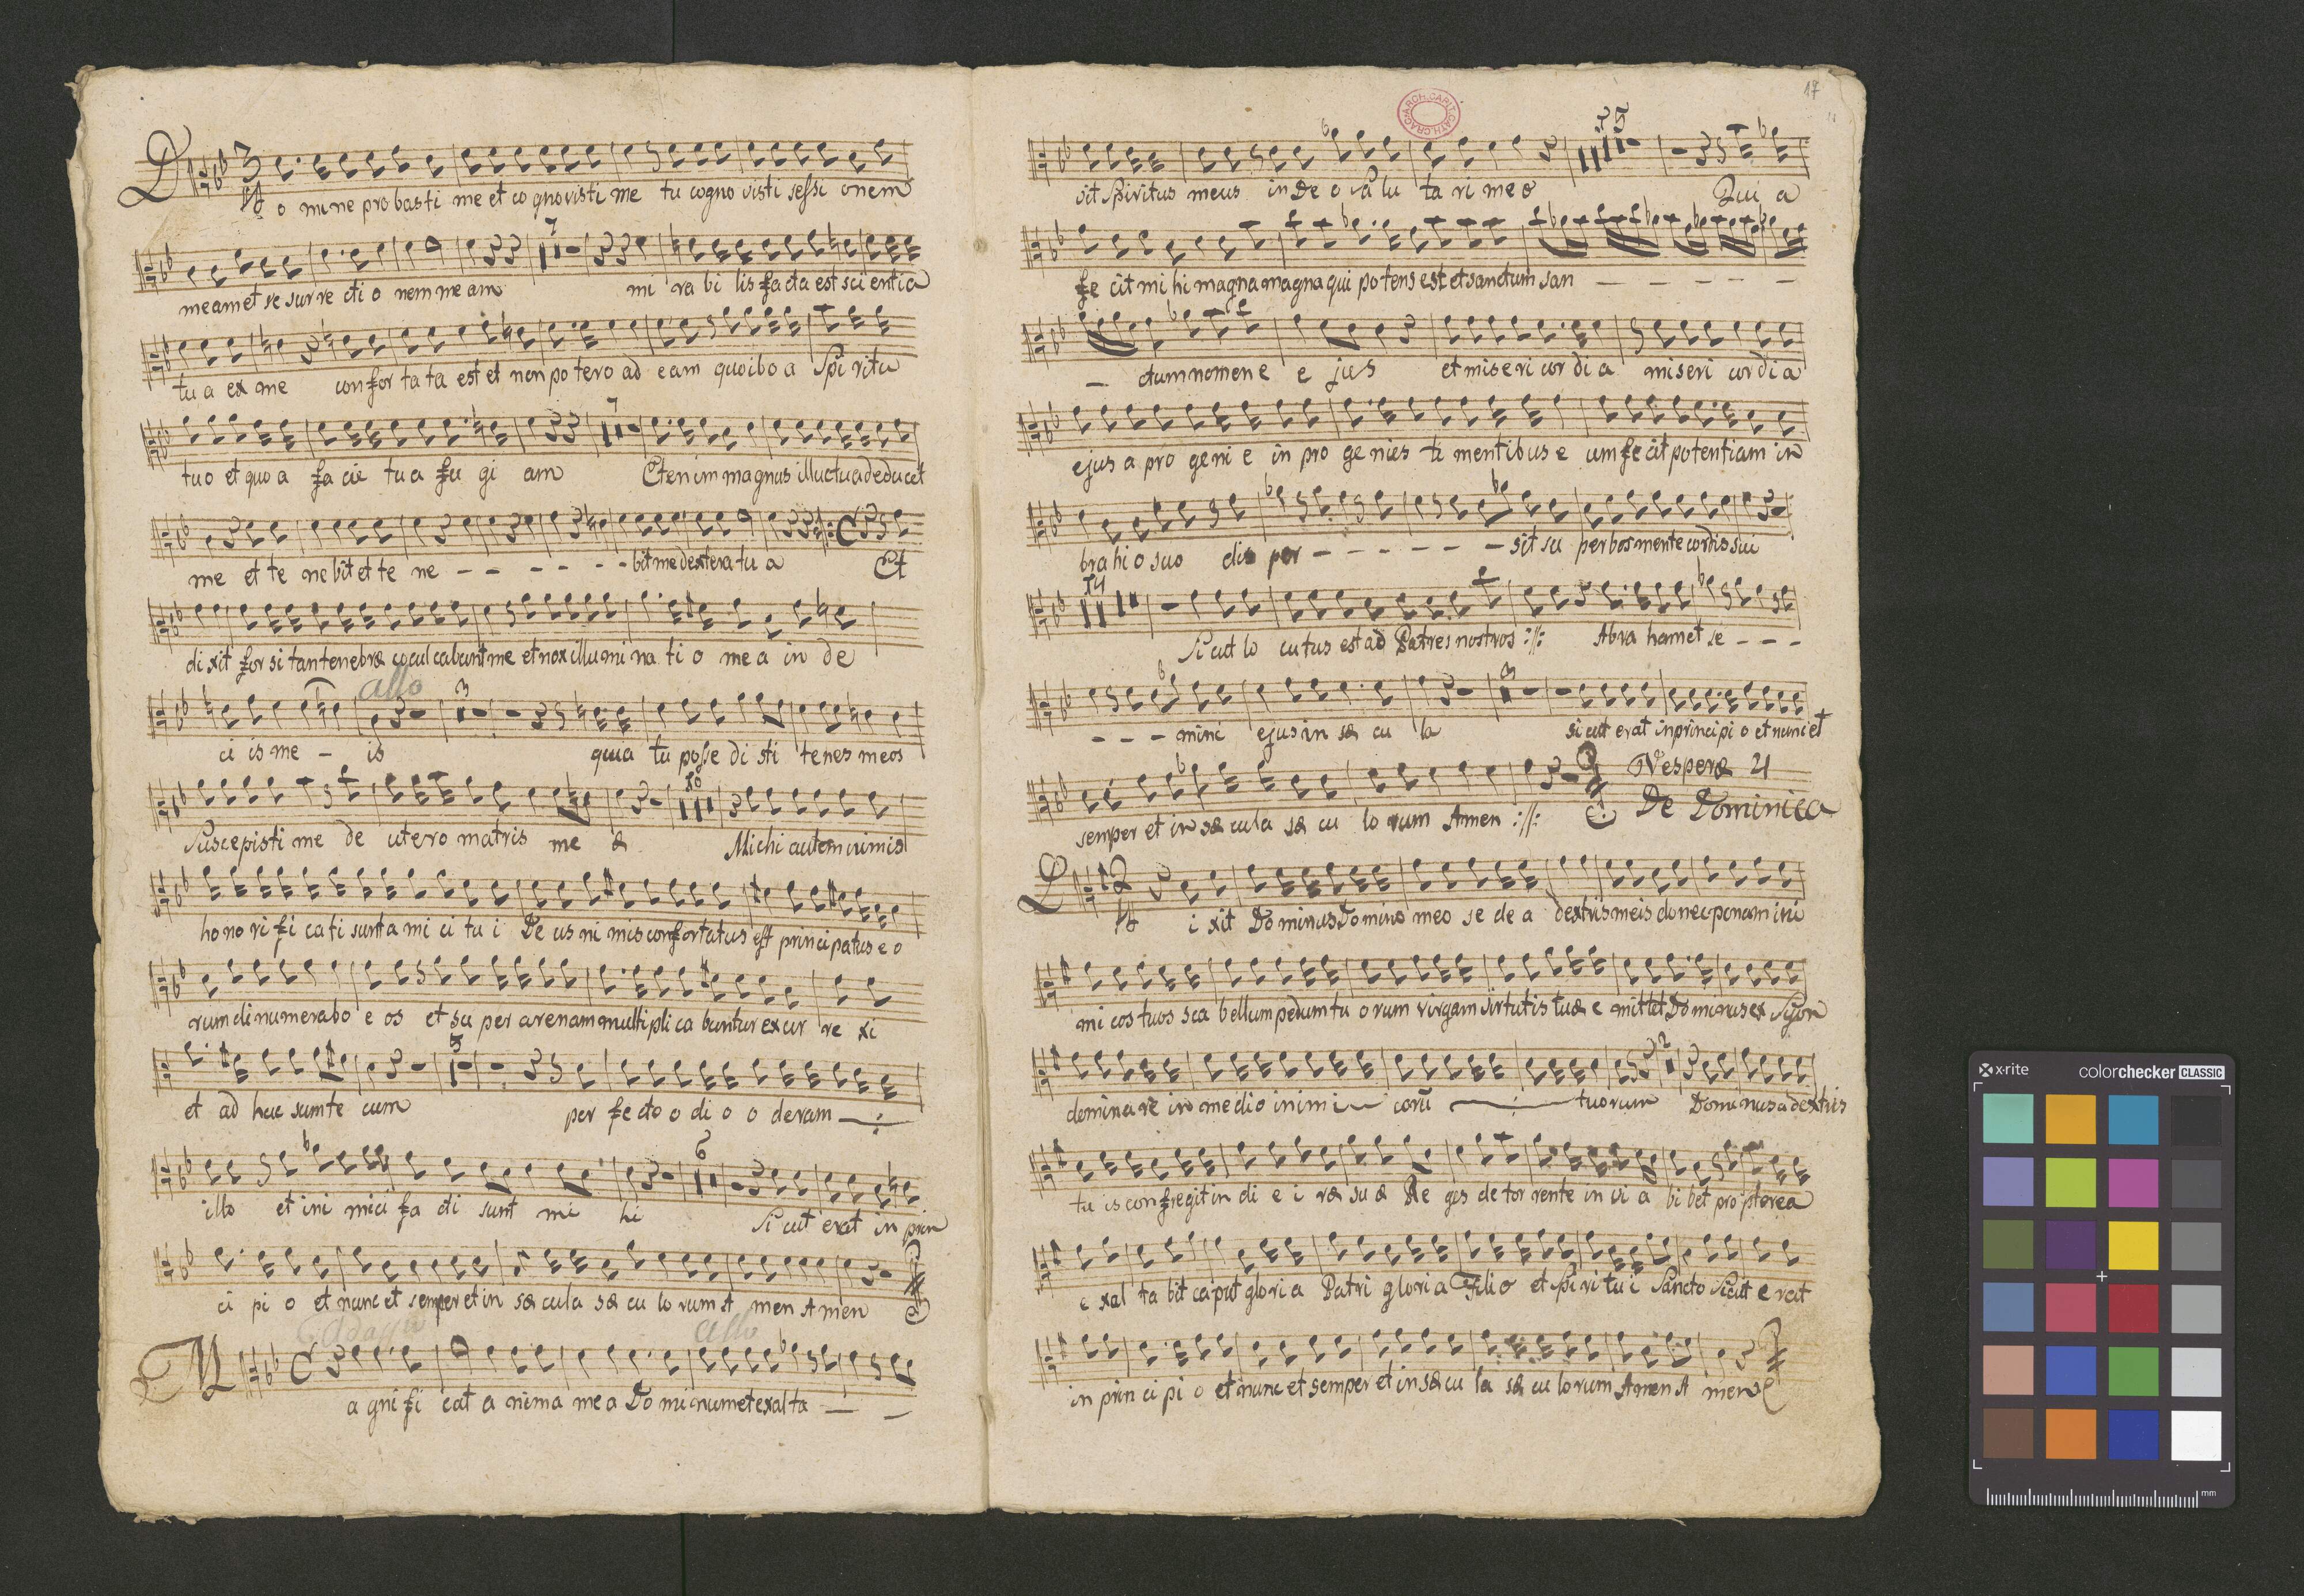 D o mi ne pro bas ti me et co gno visti me tu cogno visti sessi onem
meam et re sur re cti o nem me am mi ra bi lis facta est sci entia
tu a ex me con for ta ta est et non po tero ad eam quo ibo a Spi ritu
tuo et quo a fa cie tu a fu gi am Etenim magnus illuc tua deducet
me et te ne bit et te ne - - - - - - bit me dextera tu a Et
di xit for si tan tenebræ coculcabunt me et nox illumi na ti o me a in de
allo
ci is me - is quia tu posse di sti renes meos
Suscepisti me de utero matris me æ Michi autem nimis
ho no ri fi ca ti sunt a mi ci tu i De us ni mis confortatus est principatus e o
rum dinumerabo e os et su per arenam multipli ca buntur exur re xi
et ad huc sum te cum per fe cto o di o o deram
illo et ini mici fa cti sunt mi hi Si cut erat in prin
ci pi o et nunc et semper et in sæ cula sæ cu lo rum A men Amen
adagio allo
M a gni fi cat a nima me a Do mi num et exal ta - -
ARCH. CAPIT. CATH. CRAC.
17
sit Spiritus meus in De o sa lu ta ri me o Qui a
fe cit mi hi magna magna qui potens est et sanctum san - - - - -
- ctum nomen e e jus et mi se ri cor di a mi seri cor di a
ejus a pro geni e in pro ge nies ti mentibus e um fecit potentiam in
bra hi o suo dis per - - - - - - sit su perbos mente cordis sui
14
Si cut lo cutus est ad Patres nostros :||: Abra ham et se - - -
- - - mini ejus in sæ cu la si cut erat in principi o et nunc et
semper et in sæ cula sæ cu lo rum Amen :||: Vesperæ 4
De Dominica
D i xit Dominus Domino meo se de a dextris meis donec ponam ini
mi cos tuos sca bellum pedum tu orum virgam virtutis tuæ e mittet Dominus ex Syon
dominare in medio inimi corū tuorum Dominus a dextris
tu is confregit in di e i ræ su æ Re ges de tor rente in vi a bi bet propterea
e xal ta bit caput glori a Patri glori a Filio et Spi ri tu i Sancto sicut e rat
in prin ci pi o et nunc et semper et in sæ cu la sæ cu lorum Amen A men
x-rite colorchecker CLASSIC
mm